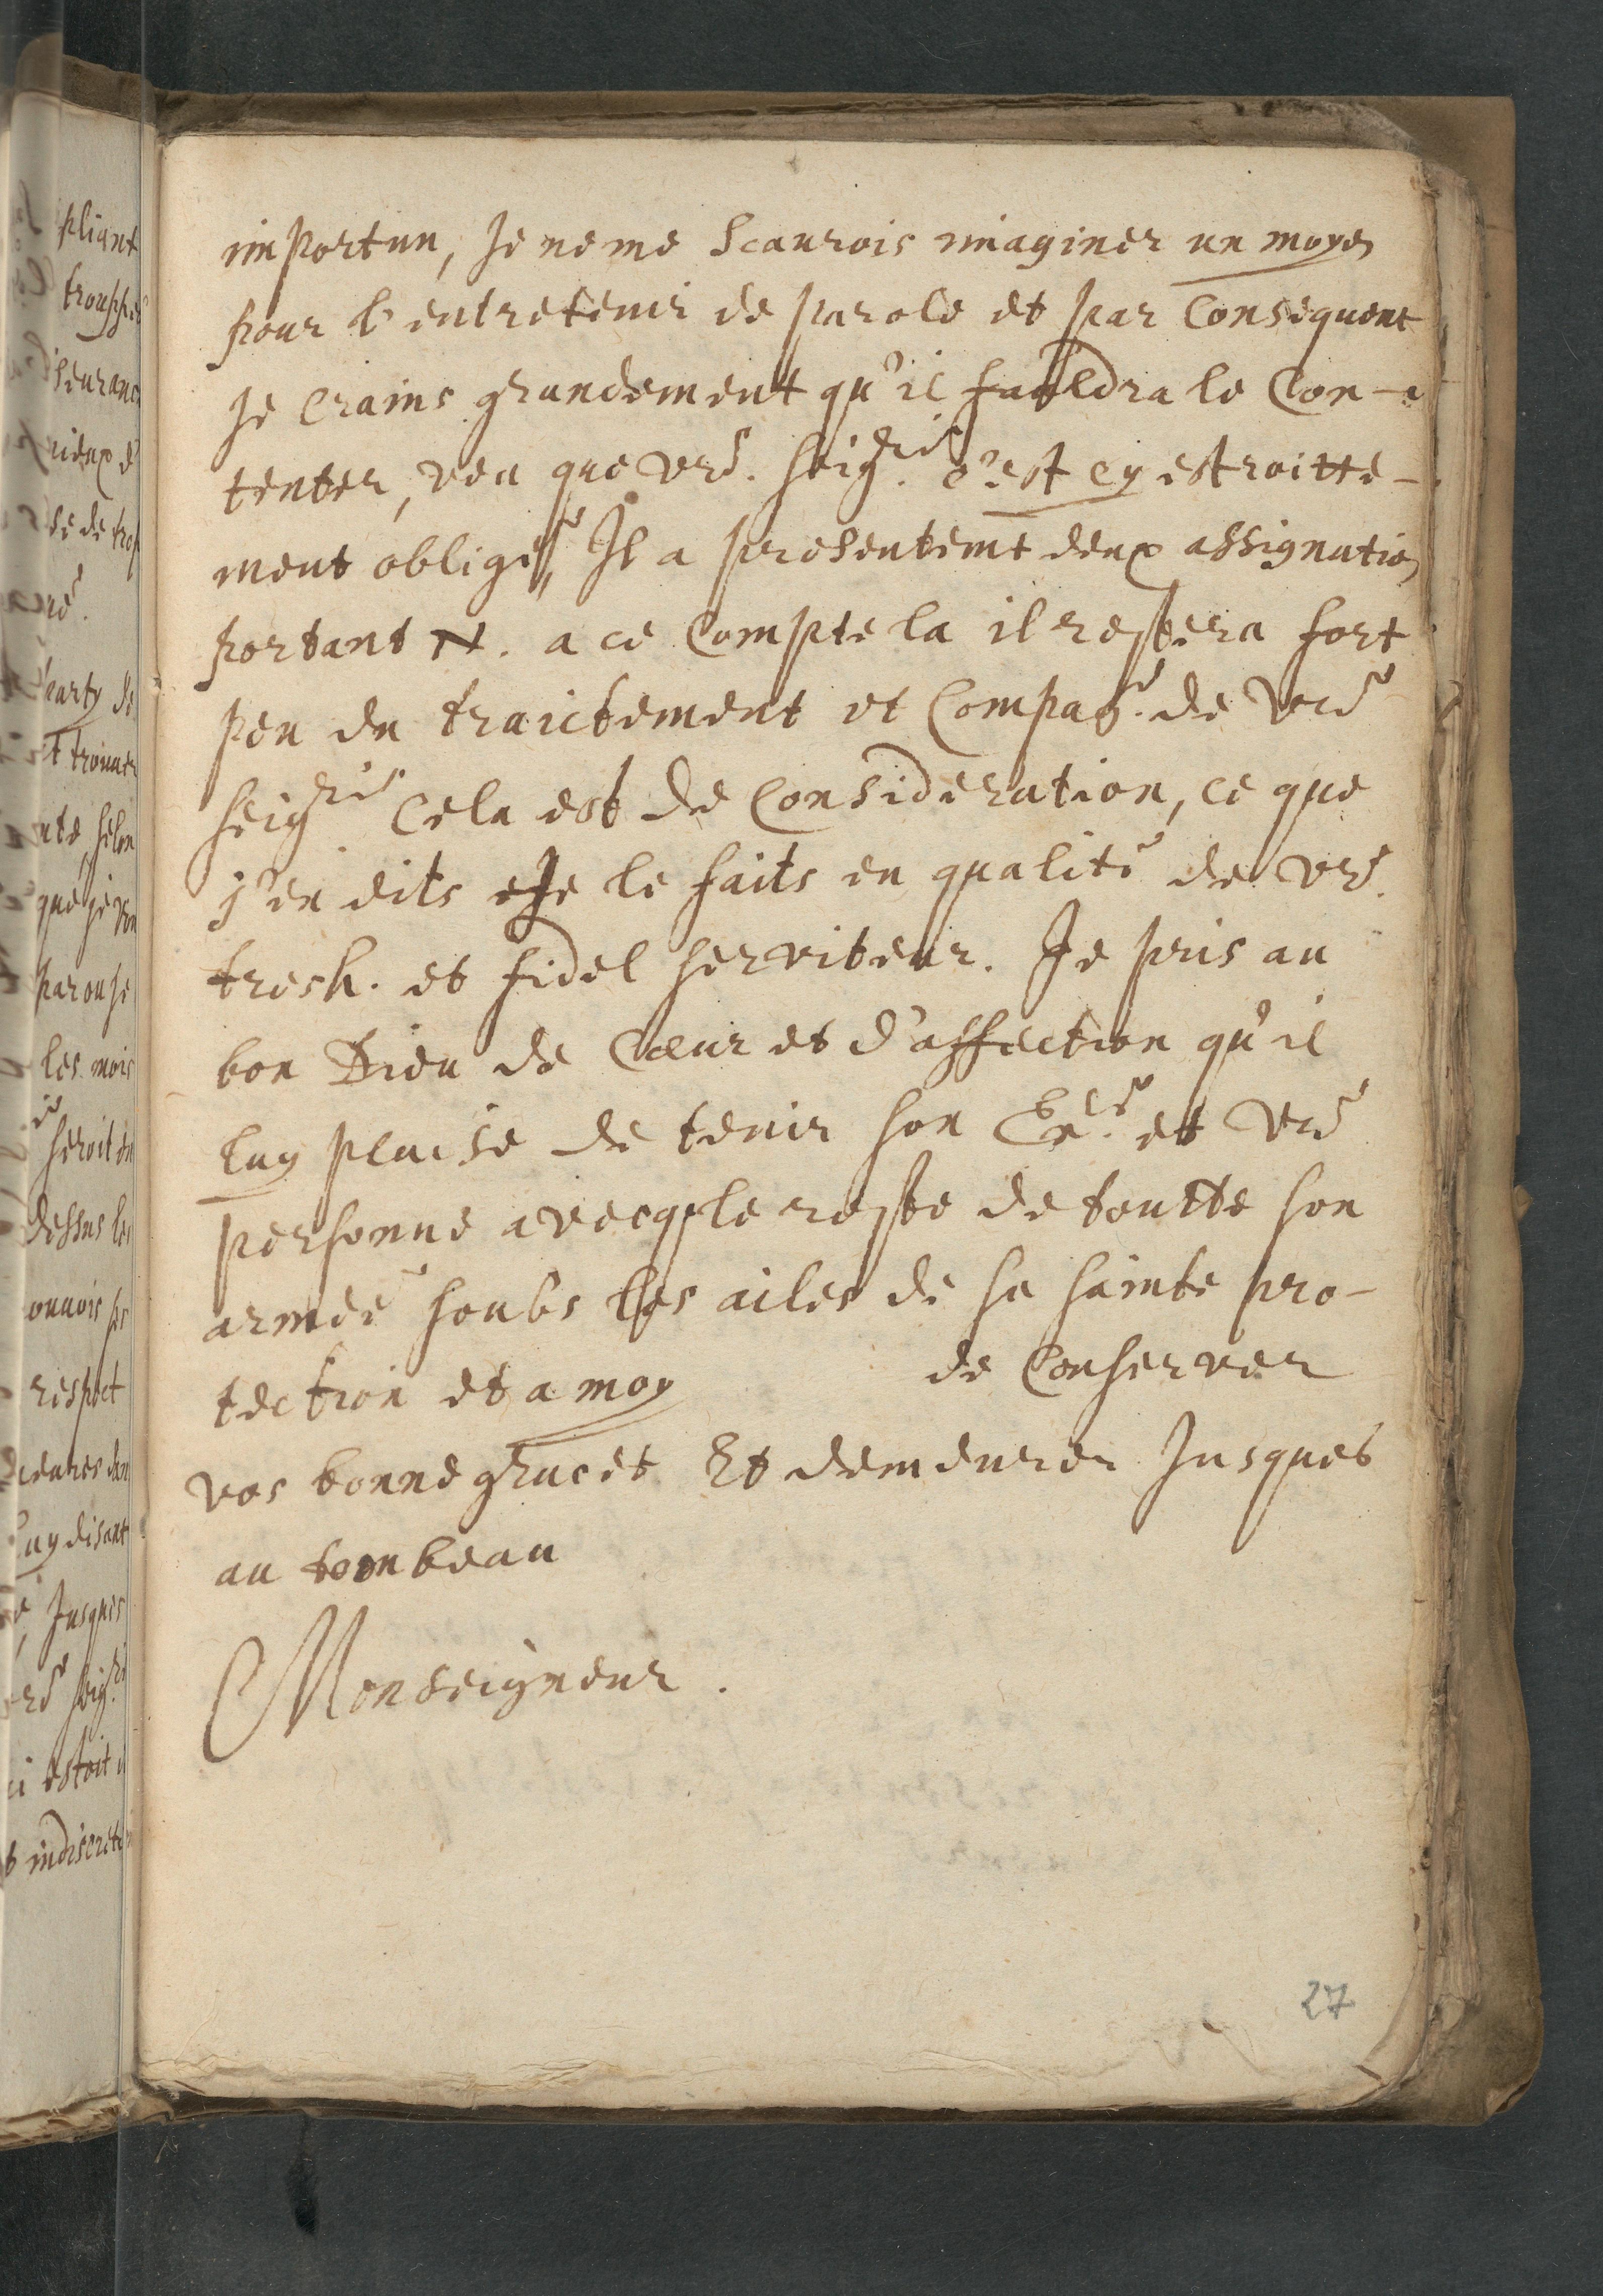 importun, Je ne me scaurois imaginer un moyen
pour l'entretenir de parole et par Consequent
Je Crains grandement qu'il fauldra le Con-
tenter, veu que vre. seig.rie c'est cy estroitte-
ment obligé, Il a presentemt deux assignatio
portant N. a ce Compte la il restera fort
peu du traictement et Compag.e de vre
seigrie Cela est de Consideration, ce que
j'en dits Je le faits en qualité de vre.
tresh. et fidel serviteur. Je pris au
bon Dieu de Cœur et d'affection qu'il
luy plaise de tenir son Ex.ce et vre
personne avecq le reste de toutte son
armée soubs les ailes de sa sainte pro-
tection et a moy de Conserver
vos bonne graces Et demeurer Jusques
au tombeau
Monseigneur.
27